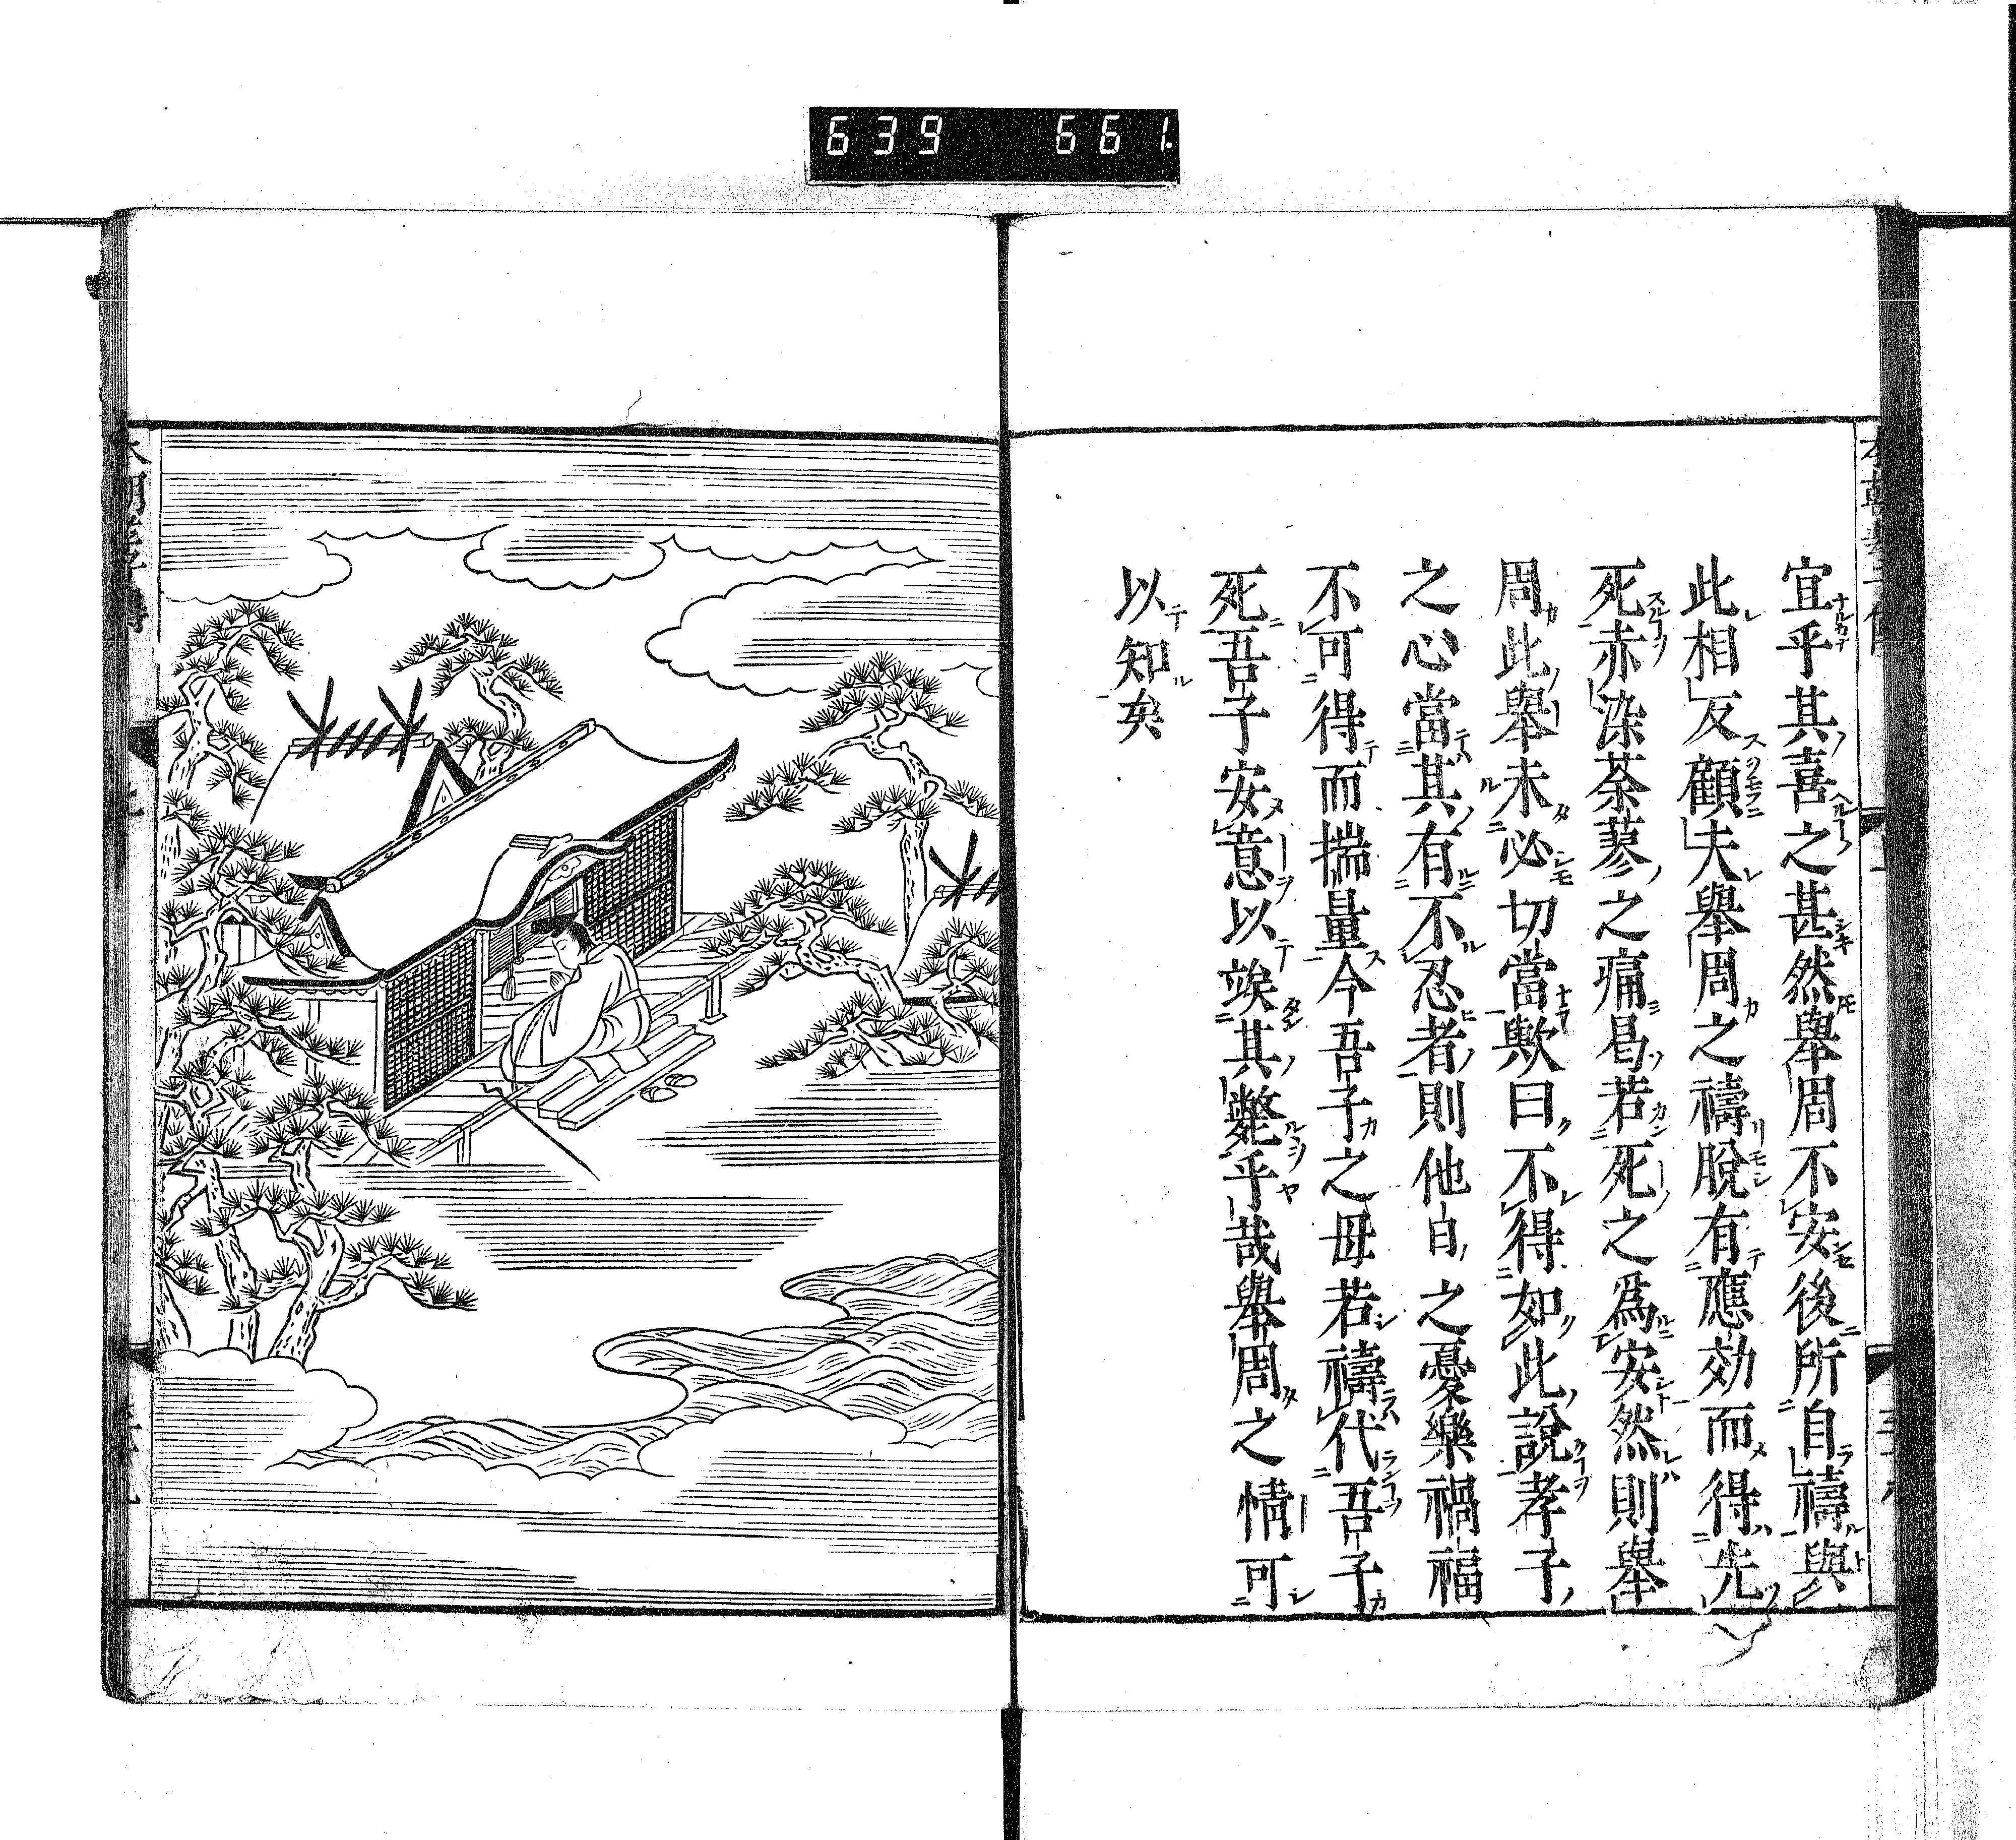 639 661.
宜乎其喜之甚然舉周不安後所自禱與
此相反顧夫舉周之禱脫有應効而得先
死赤染荼蓼之痛曷若死之爲安然則舉
周此舉未必切當歟曰不得如此說孝子
之心當其有不忍者則他日之憂樂禍福
不可得而揣量今吾子之母若禱代吾子
死吾子安意以竢其斃乎哉舉周之情可
以知矣